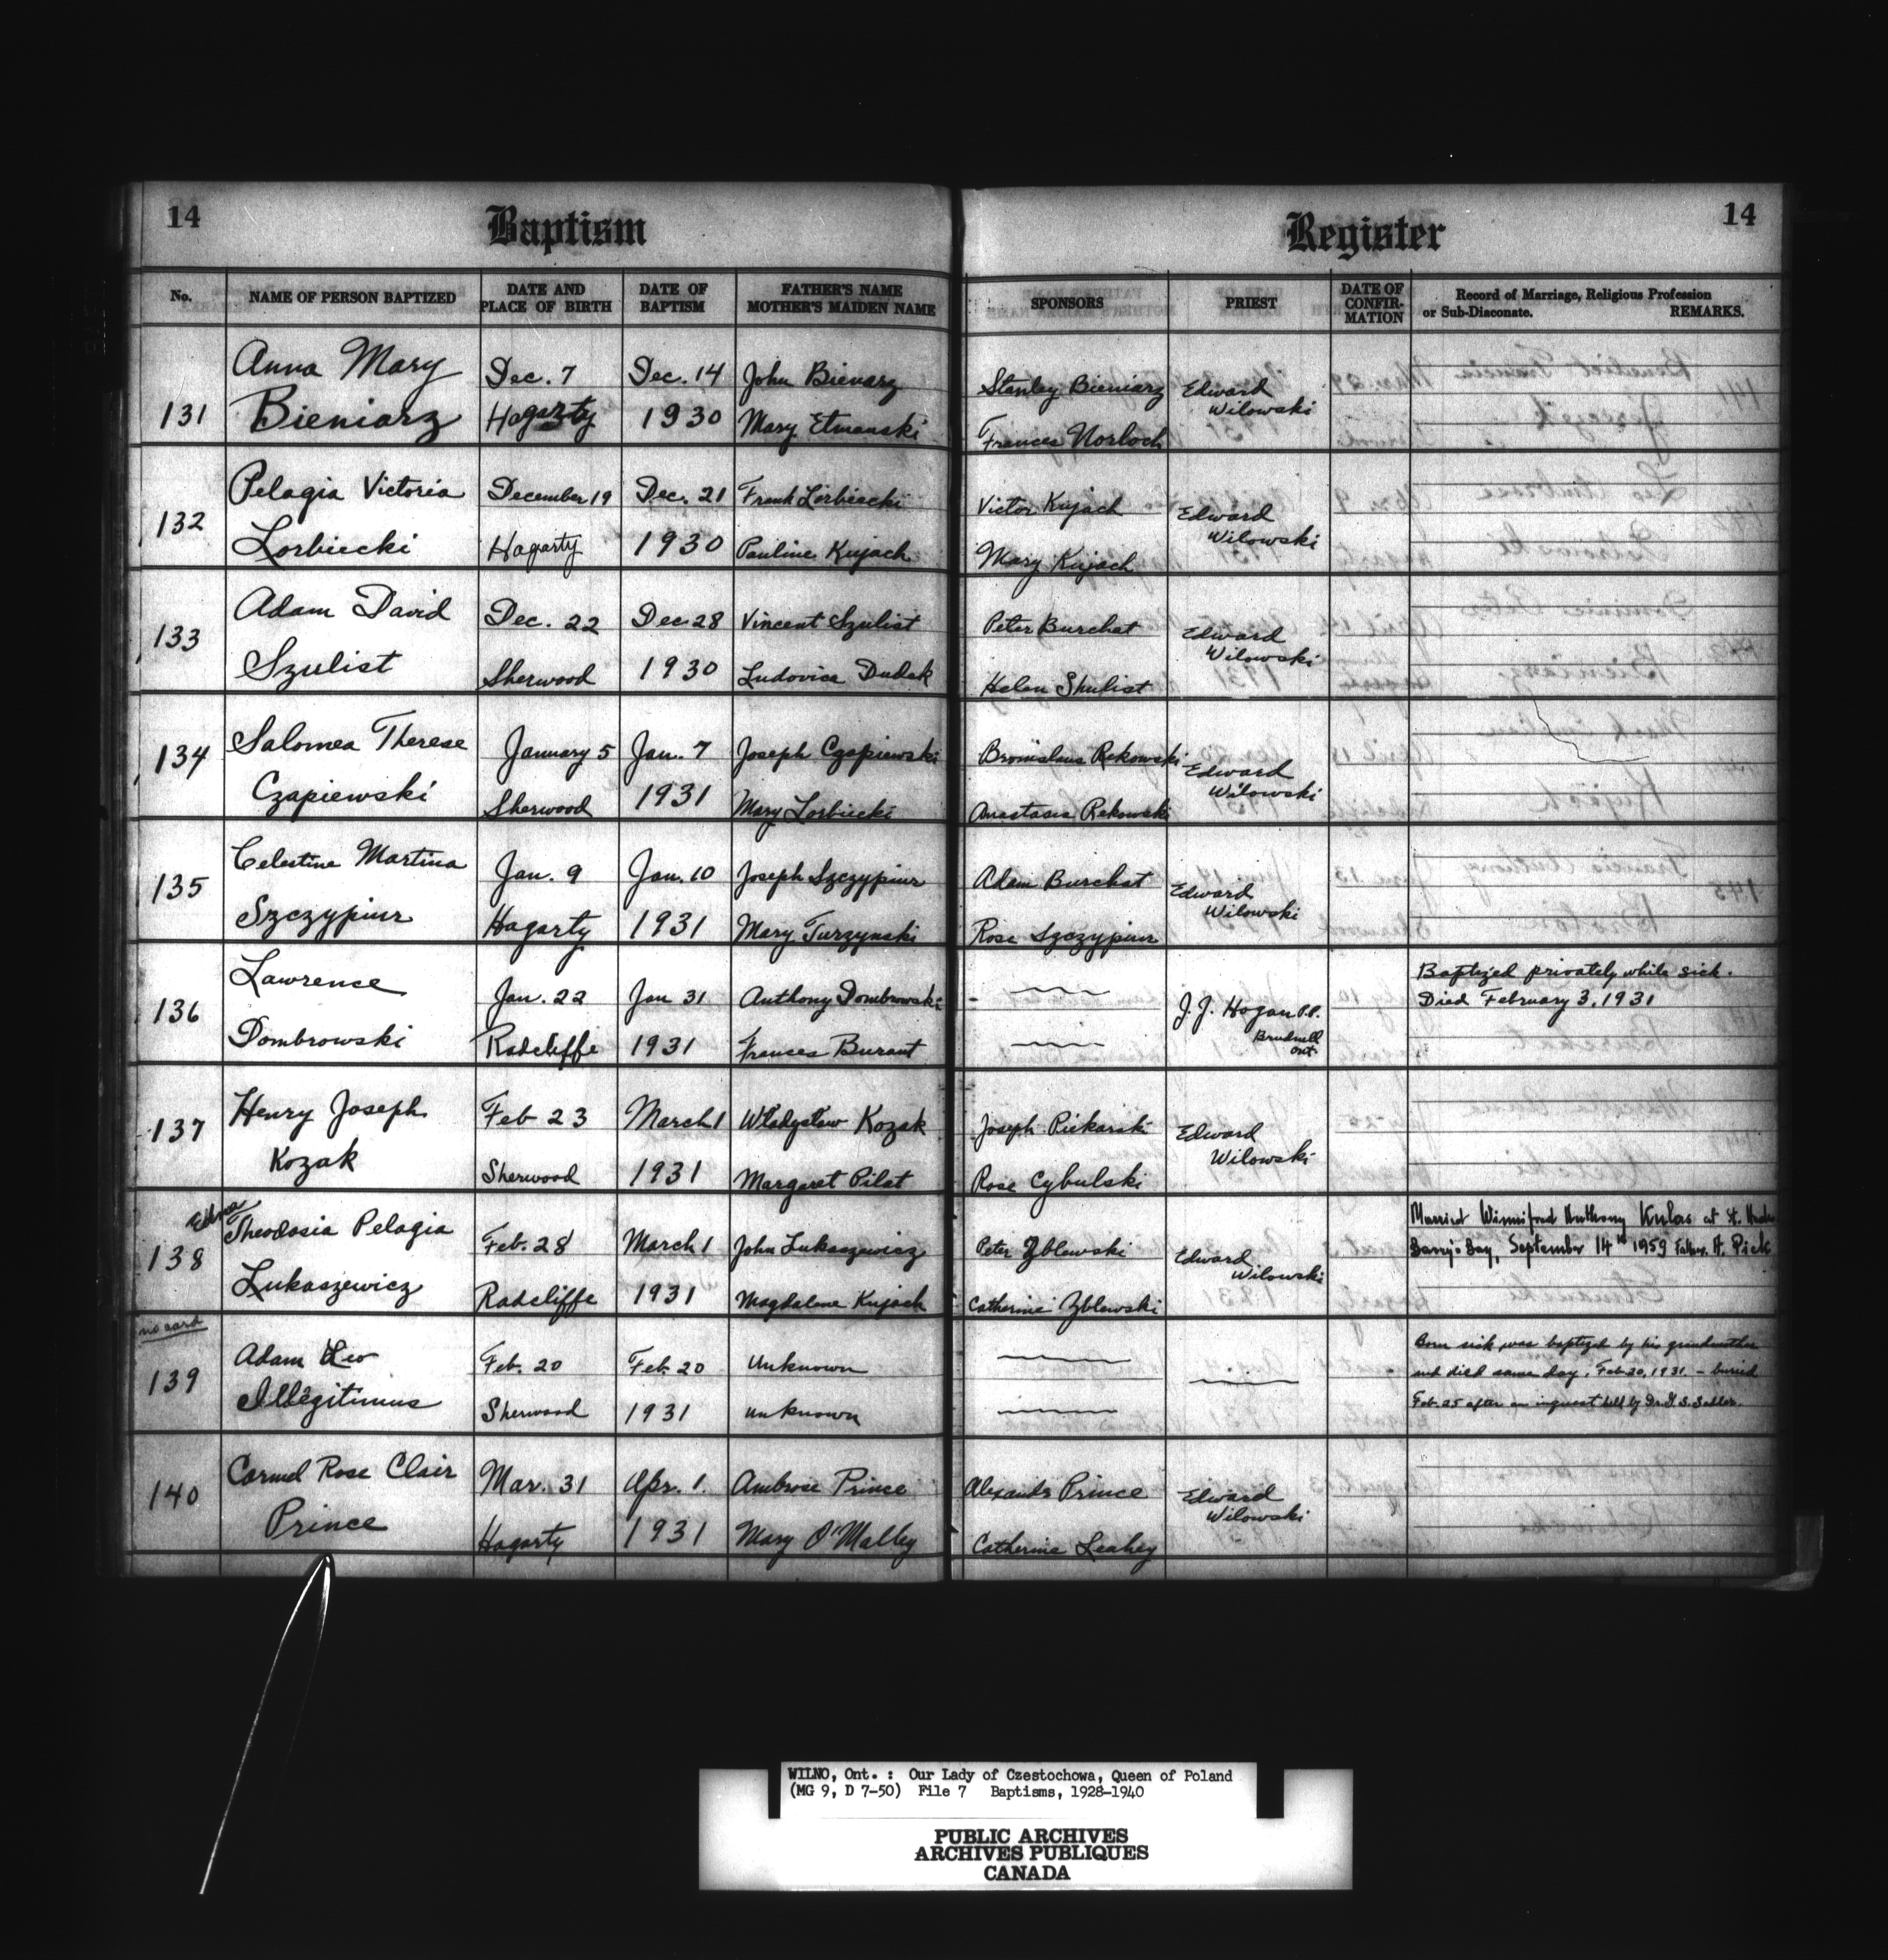 14 Baptism Register 14
No. NAME OF PERSON BAPTIZED DATE AND PLACE OF BIRTH DATE OF BAPTISM FATHER'S NAME MOTHER'S MAIDEN NAME SPONSORS PRIEST DATE OF CONFIR-MATION Record of Marriage, Religious Profession or Sub-Diaconate. REMARKS.
Anna Mary Dec. 7 Dec. 14 John Bienarz Stanley Bieniarz Edward
131 Bieniarz Hagarty 1930 Mary Etmanski Frances Norloch Wilowski
Pelagia Victoria December 19 Dec. 21 Frank Lorbiecki Victor Kujach Edward
132 Lorbiecki Hagarty 1930 Pauline Kujach Mary Kujach Wilowski
Adam David Dec. 22 Dec 28 Vincent Szulist Peter Burchat Edward
133 Szulist Sherwood 1930 Ludovica Dudek Helen Shulist Wilowski
Salomea Therese January 5 Jan. 7 Joseph Czapiewski Bronislaus Rekowski Edward
134 Czapiewski Sherwood 1931 Mary Lorbiecki Anastasia Rekowski Wilowski
Celestine Martina Jan. 9 Jan. 10 Joseph Szczypiur Adam Burchat Edward
135 Szczypiur Hagarty 1931 Mary Turzynski Rose Szczypiur Wilowski
Lawrence Jan. 22 Jan 31 Anthony Dombrowski J. J. Hogan P.P. Baptized privately while sick.
136 Dombrowski Radcliffe 1931 Frances Burant Brudnell Ont. Died February 3, 1931
Henry Joseph Feb 23 March 1 Władysław Kozak Joseph Piekarski Edward
137 Kozak Sherwood 1931 Margaret Pilat Rose Cybulski Wilowski
Edna
Theodosia Pelagia Feb. 28 March 1 John Lukaszewicz Peter Yblewski Edward Married Winnifred Anthony Kulas at St.
138 Lukaszewicz Radcliffe 1931 Magdalene Kujach Catherine Yblewski Wilowski Barry's Bay, September 14th 1959 Father. A. Pick
no card
Adam Leo Feb. 20 Feb. 20 Unknown Born sick was baptized by his grandmother
139 Illegitimus Sherwood 1931 unknown and died same day, Feb 20, 1931. - buried
Feb. 25 after an inquest held by Dr.
Carmel Rose Clair Mar. 31 Apr. 1. Ambrose Prince Alexander Prince Edward
140 Prince Hagarty 1931 Mary O'Malley Catherine Leahey Wilowski
WILNO, Ont. : Our Lady of Czestochowa, Queen of Poland
(MG 9, D 7-50) File 7 Baptisms, 1928-1940
PUBLIC ARCHIVES
ARCHIVES PUBLIQUES
CANADA